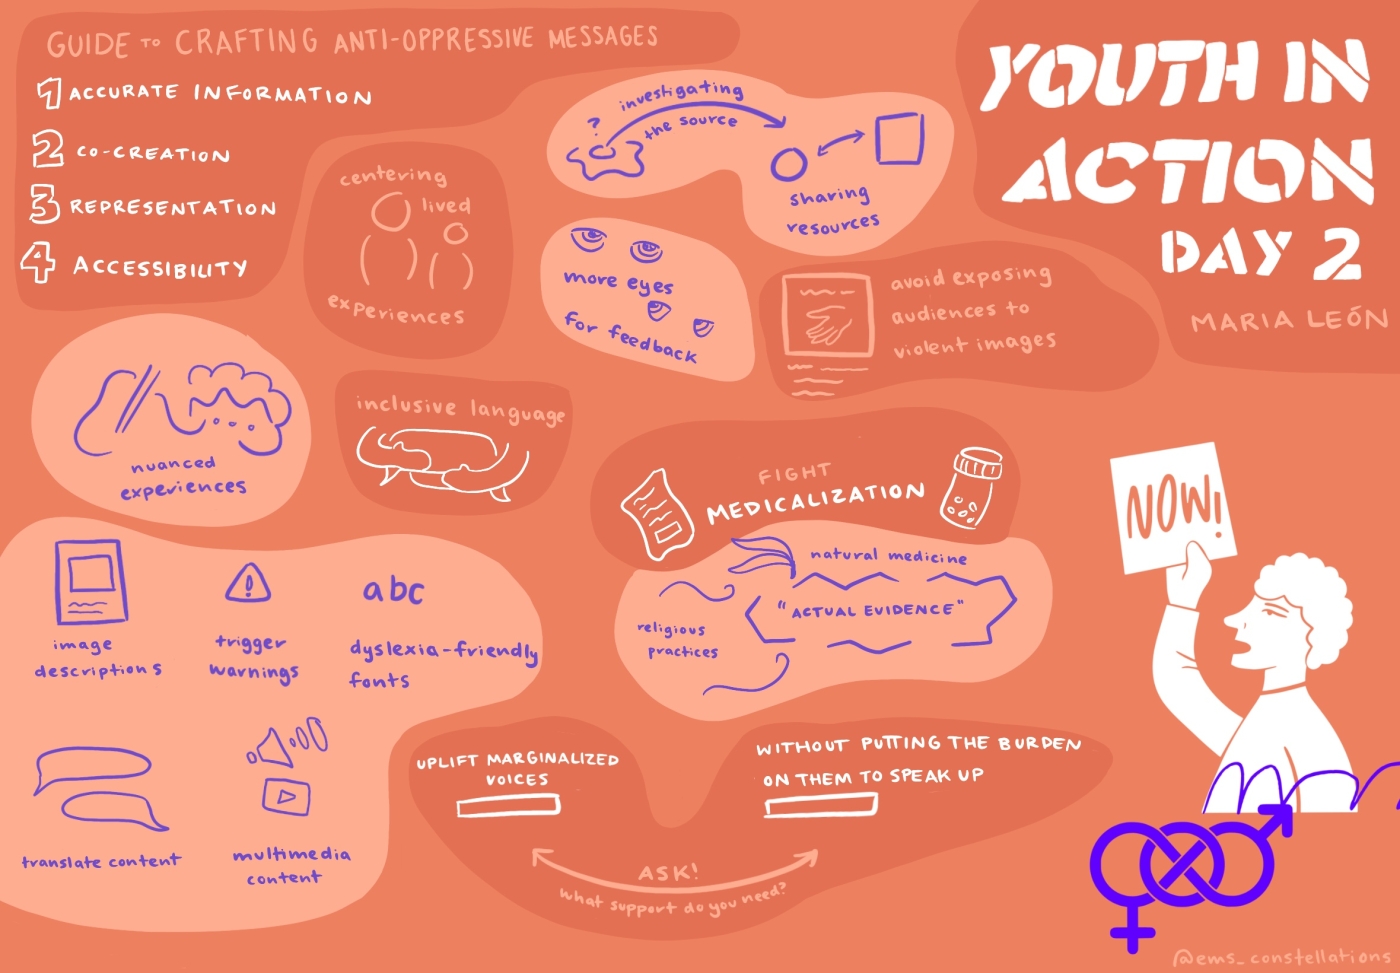 GUIDE TO CRAFTING ANTI-OPPRESSIVE MESSAGES
1 ACCURATE INFORMATION
2 CO-CREATION
3 REPRESENTATION
4 ACCESSIBILITY
centering
lived
experiences
investigating
the source
?
sharing
resources
more eyes
for feedback
YOUTH IN
ACTION
DAY 2
MARIA LEÓN
avoid exposing
audiences to
violent images
nuanced
experiences
inclusive language
FIGHT
MEDICALIZATION
natural medicine
"ACTUAL EVIDENCE"
religious
practices
image
descriptions
!
trigger
warnings
abc
dyslexia-friendly
fonts
translate content
multimedia
content
UPLIFT MARGINALIZED
VOICES
WITHOUT PUTTING THE BURDEN
ON THEM TO SPEAK UP
ASK!
what support do you need?
NOW!
@ems_constellations